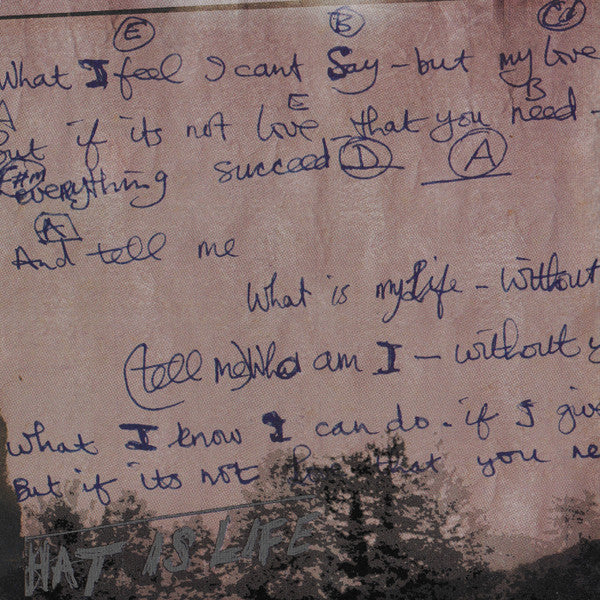 E B C#
What I feel I cant Say - but my love
A E B
But if its not love - that you need -
F#m everything succeed D A
A
And tell me
What is my Life - without
(tell me) Who am I - without y
What I know I can do - if I give
But if its not love that you ne
HAT IS LIFE